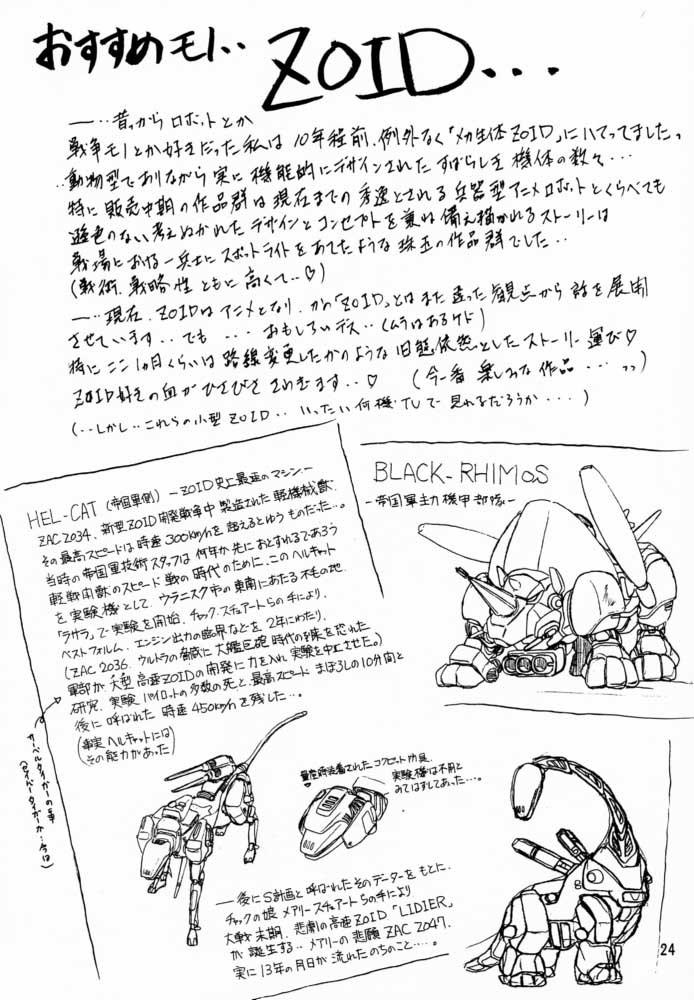 おすすめモノ‥ ZOID…
—‥昔っからロボットとか
戦争モノとか好きだった私は10年程前、例外なく「メカ生体ZOID」にハマってましたっ
‥動物型でありながら実に機能的にデザインされたすばらしき機体の数々…
特に販売中期の作品群は現在までの秀逸とされる兵器型アニメロボットとくらべても
遜色のない考えぬかれたデザインとコンセプトを兼ね備え描かれるストーリーは
戦場における一兵士にスポットライトをあてたような珠玉の作品群でした‥
(戦術、戦略性ともに高くて‥♡)
—‥現在、ZOIDはアニメとなり、かの「ZOID」とはまた違った観点から話を展開
させています‥でも…おもしろいデス‥(ムラはあるケド)
特にここ1ヵ月くらいは路線変更したかのような旧態依然としたストーリー運び♡
ZOID好きの血がひさびささわぎます‥♡ (今一番楽しみな作品…っっ)
(‥しかし‥これらの小型ZOID‥いったい何機TVで見れるだろうか…)
HEL-CAT (帝国軍側) —ZOID史上最速のマシン—
ZAC2034、新型ZOID開発戦争中製造された軽機械獣。
その最高スピードは時速300km/hを超えるとゆうものだった…。
当時の帝国軍技術スタッフは何年か先におとずれるであろう
軽戦闘獣のスピード戦の時代のために、このヘルキャット
を実験機として、ウラニスク市の東南にあたる不毛の地、
「ラサラ」で実験を開始、チャック・スチュアートらの手により、
ベストフォルム、エンジン出力の臨界などを2年にわたり、
(ZAC2036、ウルトラの脅威に大艦巨砲時代の到来を恐れた
軍部が大型高速ZOIDの開発に力を入れ実験を中止させた。)
研究、実験パイロットの多数の死と、最高スピードまぼろしの10分間と
後に呼ばれた時速450km/hを残した…。
(事実ヘルキャットには
その能力があった)
サーベルタイガーの事
(セイバータイガーか…今は)
BLACK-RHIMOS
—帝国軍主力機甲部隊—
量産時装着されたコクピット防具。
実験機は不用と
みてはずしてあった…。
—後にS計画と呼ばれたそのデーターをもとに、
チャックの娘 メアリースチュアートらの手により
大戦末期、悲劇の高速ZOID「LIDIER」
が誕生する‥メアリーの悲願ZAC2047、
実に13年の月日が流れたのちのこと…。
24